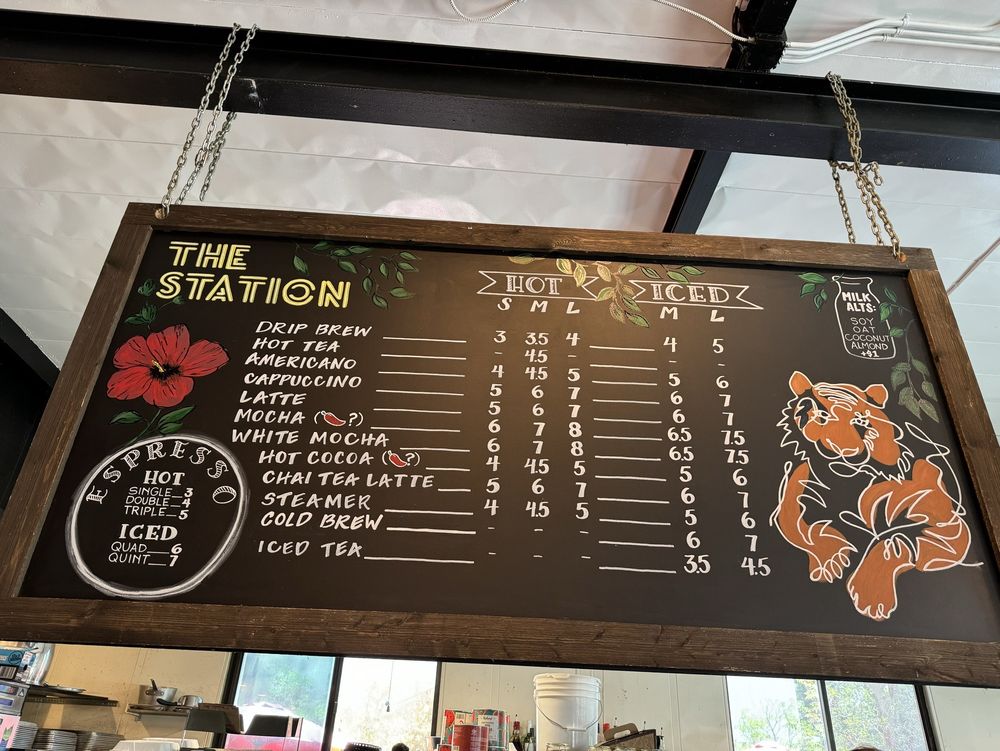 THE
STATION
HOT ICED
S M L M L
DRIP BREW 3 3.5 4 4 5
HOT TEA - 4.5 - - -
AMERICANO 4 4.5 5 5 6
CAPPUCCINO 5 6 7 6 7
LATTE 5 6 7 6 7
MOCHA ( ?) 6 7 8 6.5 7.5
WHITE MOCHA 6 7 8 6.5 7.5
HOT COCOA ( ?) 4 4.5 5 5 6
CHAI TEA LATTE 5 6 7 6 7
STEAMER 4 4.5 5 5 6
COLD BREW - - - 6 7
ICED TEA - - - 3.5 4.5
ESPRESSO
HOT
SINGLE 3
DOUBLE 4
TRIPLE 5
ICED
QUAD 6
QUINT 7
MILK
ALTS:
SOY
OAT
COCONUT
ALMOND
+$1